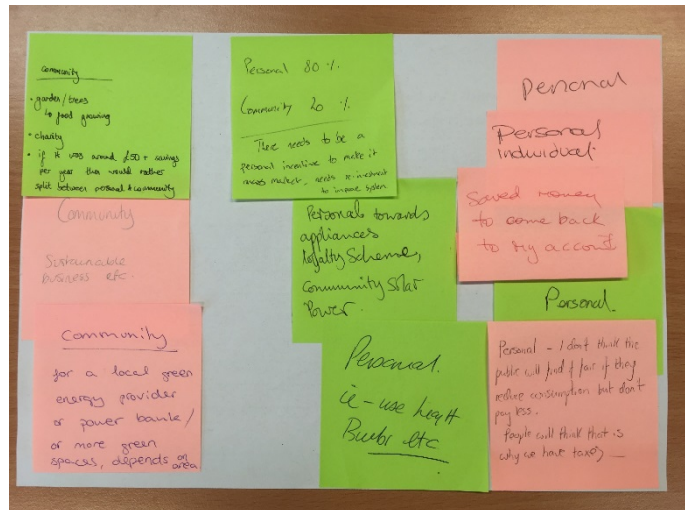 Community
• garden/trees
↳ food growing
• charity
• if it was around £50+ savings
per year then would rather
split between personal & community
Community
Sustainable
business etc.
Community
for a local green
energy provider
or power bank/
or more green
spaces, depends on
area
Personal 80 %
Community 20 %
There needs to be a
personal incentive to make it
mass market, needs re-investment
to improve system
Personal towards
appliances
loyalty scheme,
community solar
Power.
Personal.
ie - use
etc
Personal
Personal
individual.
Saved money
to come back
to my account
Personal.
Personal - I don't think the
public will find it fair if they
reduce consumption but don't
pay less.
People will think that is
why we have taxes